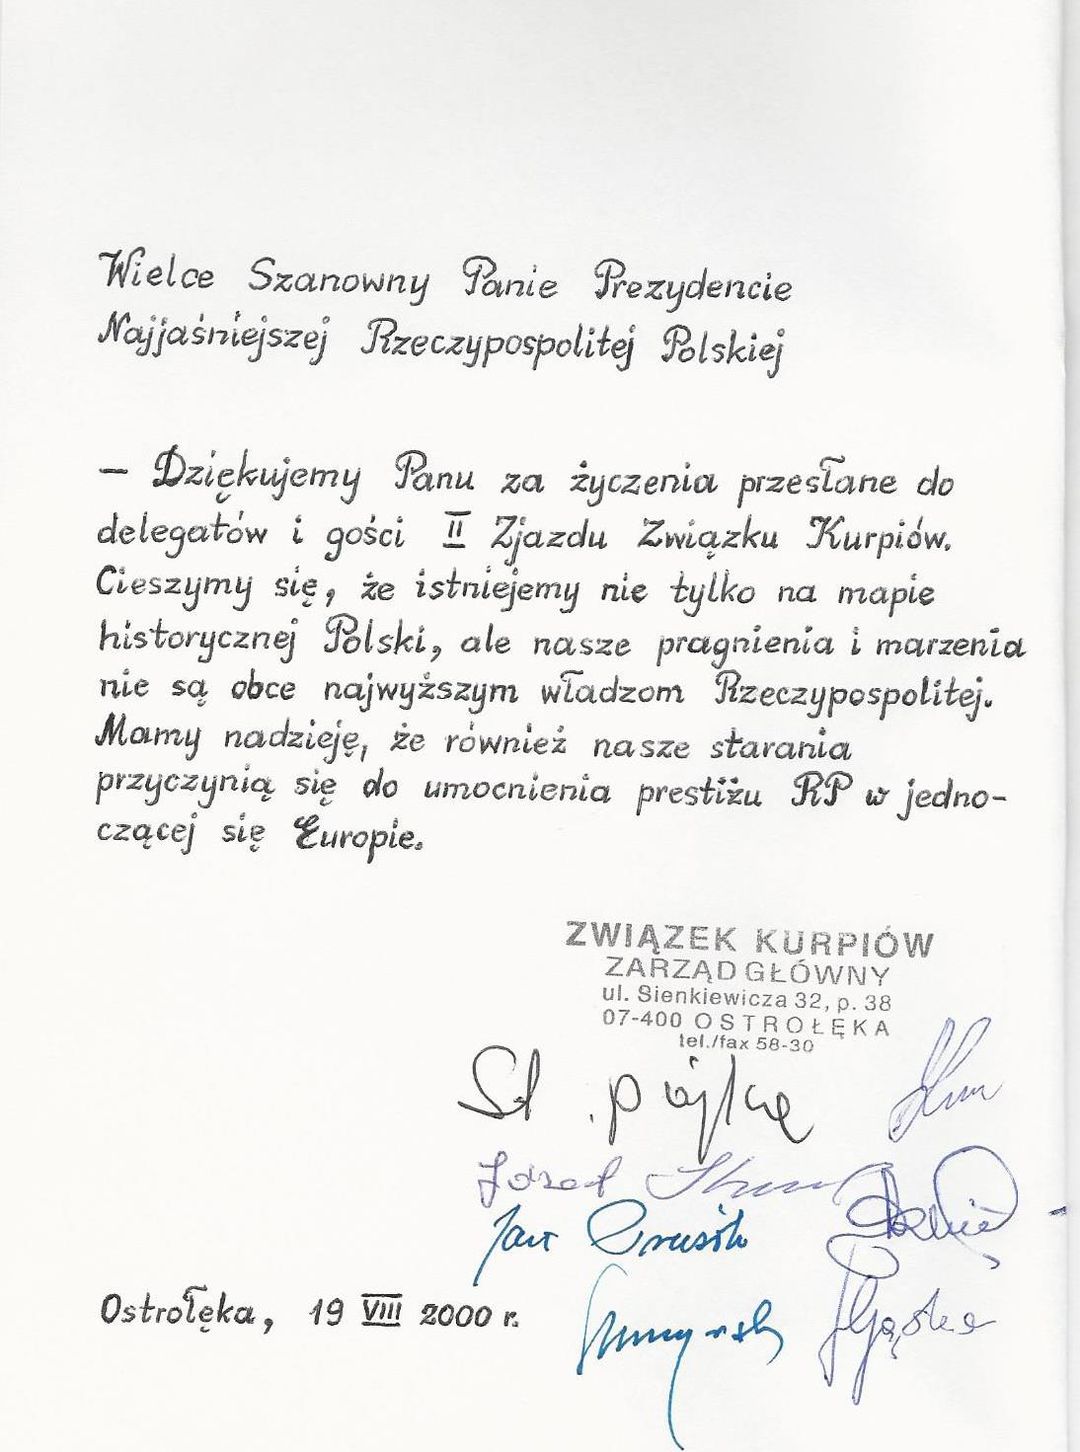 Wielce Szanowny Panie Prezydencie
Najjaśniejszej Rzeczypospolitej Polskiej
— Dziękujemy Panu za życzenia przesłane do
delegatów i gości II Zjazdu Związku Kurpiów.
Cieszymy się, że istniejemy nie tylko na mapie
historycznej Polski, ale nasze pragnienia i marzenia
nie są obce najwyższym władzom Rzeczypospolitej.
Mamy nadzieję, że również nasze starania
przyczynią się do umocnienia prestiżu RP w jedno-
czącej się Europie.
ZWIĄZEK KURPIÓW
ZARZĄD GŁÓWNY
ul. Sienkiewicza 32, p. 38
07-400 OSTROŁĘKA
tel./fax 58-30
St.
Józef
Jan
Ostrołęka, 19 VIII 2000 r.